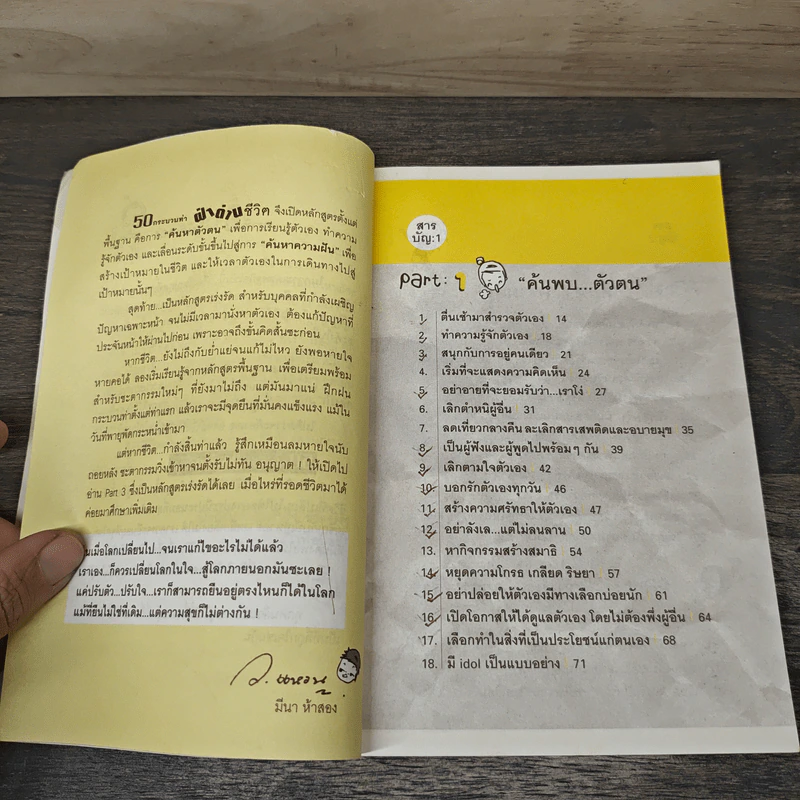 50 กระบวนท่า ฝ่าด่านชีวิต จึงเปิดหลักสูตรตั้งแต่
พื้นฐาน คือการ “ค้นหาตัวตน” เพื่อการเรียนรู้ตัวเอง ทำความ
รู้จักตัวเอง และเลื่อนระดับขั้นขึ้นไปสู่การ “ค้นหาความฝัน” เพื่อ
สร้างเป้าหมายในชีวิต และให้เวลาตัวเองในการเดินทางไปสู่
เป้าหมายนั้นๆ
สุดท้าย...เป็นหลักสูตรเร่งรัด สำหรับบุคคลที่กำลังเผชิญ
ปัญหาเฉพาะหน้า จนไม่มีเวลามานั่งหาตัวเอง ต้องแก้ปัญหาที่
ประจันหน้าให้ผ่านไปก่อน เพราะอาจถึงขั้นคิดสั้นซะก่อน
หากชีวิต...ยังไม่ถึงกับย่ำแย่จนแก้ไม่ไหว ยังพอหายใจ
หายคอได้ ลองเริ่มเรียนรู้จากหลักสูตรพื้นฐาน เพื่อเตรียมพร้อม
สำหรับชะตากรรมใหม่ๆ ที่ยังมาไม่ถึง แต่มันมาแน่ ฝึกฝน
กระบวนท่าตั้งแต่ท่าแรก แล้วเราจะมีจุดยืนที่มั่นคงแข็งแรง แม้ใน
วันที่พายุพัดกระหน่ำเข้ามา
แต่หากชีวิต...กำลังสิ้นท่าแล้ว รู้สึกเหมือนลมหายใจนับ
ถอยหลัง ชะตากรรมวิ่งเข้าหาจนตั้งรับไม่ทัน อนุญาต ! ให้เปิดไป
อ่าน Part 3 ซึ่งเป็นหลักสูตรเร่งรัดได้เลย เมื่อไหร่ที่รอดชีวิตมาได้
ค่อยมาศึกษาเพิ่มเติม
เมื่อโลกเปลี่ยนไป...จนเราแก้ไขอะไรไม่ได้แล้ว
เราเอง...ก็ควรเปลี่ยนโลกในใจ...สู้โลกภายนอกมันซะเลย !
แค่ปรับตัว...ปรับใจ...เราก็สามารถยืนอยู่ตรงไหนก็ได้ในโลก
แม้ที่ยืนไม่ใช่ที่เดิม...แต่ความสุขก็ไม่ต่างกัน !
ว. แหวน
มีนา ห้าสอง
สาร
บัญ:1
Part: 1 “ค้นพบ...ตัวตน”
1. ตื่นเช้ามาสำรวจตัวเอง 14
2. ทำความรู้จักตัวเอง 18
3. สนุกกับการอยู่คนเดียว 21
4. เริ่มที่จะแสดงความคิดเห็น 24
5. อย่าอายที่จะยอมรับว่า...เราโง่ 27
6. เลิกตำหนิผู้อื่น 31
7. ลดเที่ยวกลางคืน ละเลิกสารเสพติดและอบายมุข 35
8. เป็นผู้ฟังและผู้พูดไปพร้อมๆ กัน 39
9. เลิกตามใจตัวเอง 42
10. บอกรักตัวเองทุกวัน 46
11. สร้างความศรัทธาให้ตัวเอง 47
12. อย่าลังเล...แต่ไม่ลนลาน 50
13. หากิจกรรมสร้างสมาธิ 54
14. หยุดความโกรธ เกลียด ริษยา 57
15. อย่าปล่อยให้ตัวเองมีทางเลือกบ่อยนัก 61
16. เปิดโอกาสให้ได้ดูแลตัวเอง โดยไม่ต้องพึ่งผู้อื่น 64
17. เลือกทำในสิ่งที่เป็นประโยชน์แก่ตนเอง 68
18. มี idol เป็นแบบอย่าง 71